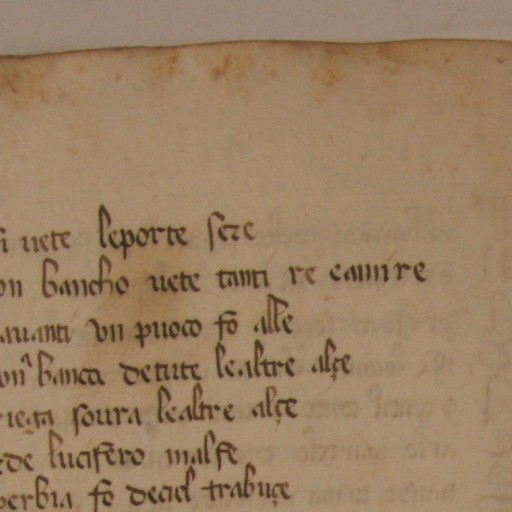 uete leporte seze
on bancho uete tanti re e amire
auanti vn puoco fo alle
banca detute lealtre alçe
riega soura lealtre alçe
ede lucifero malfe
perbia fo deciel trabuçe